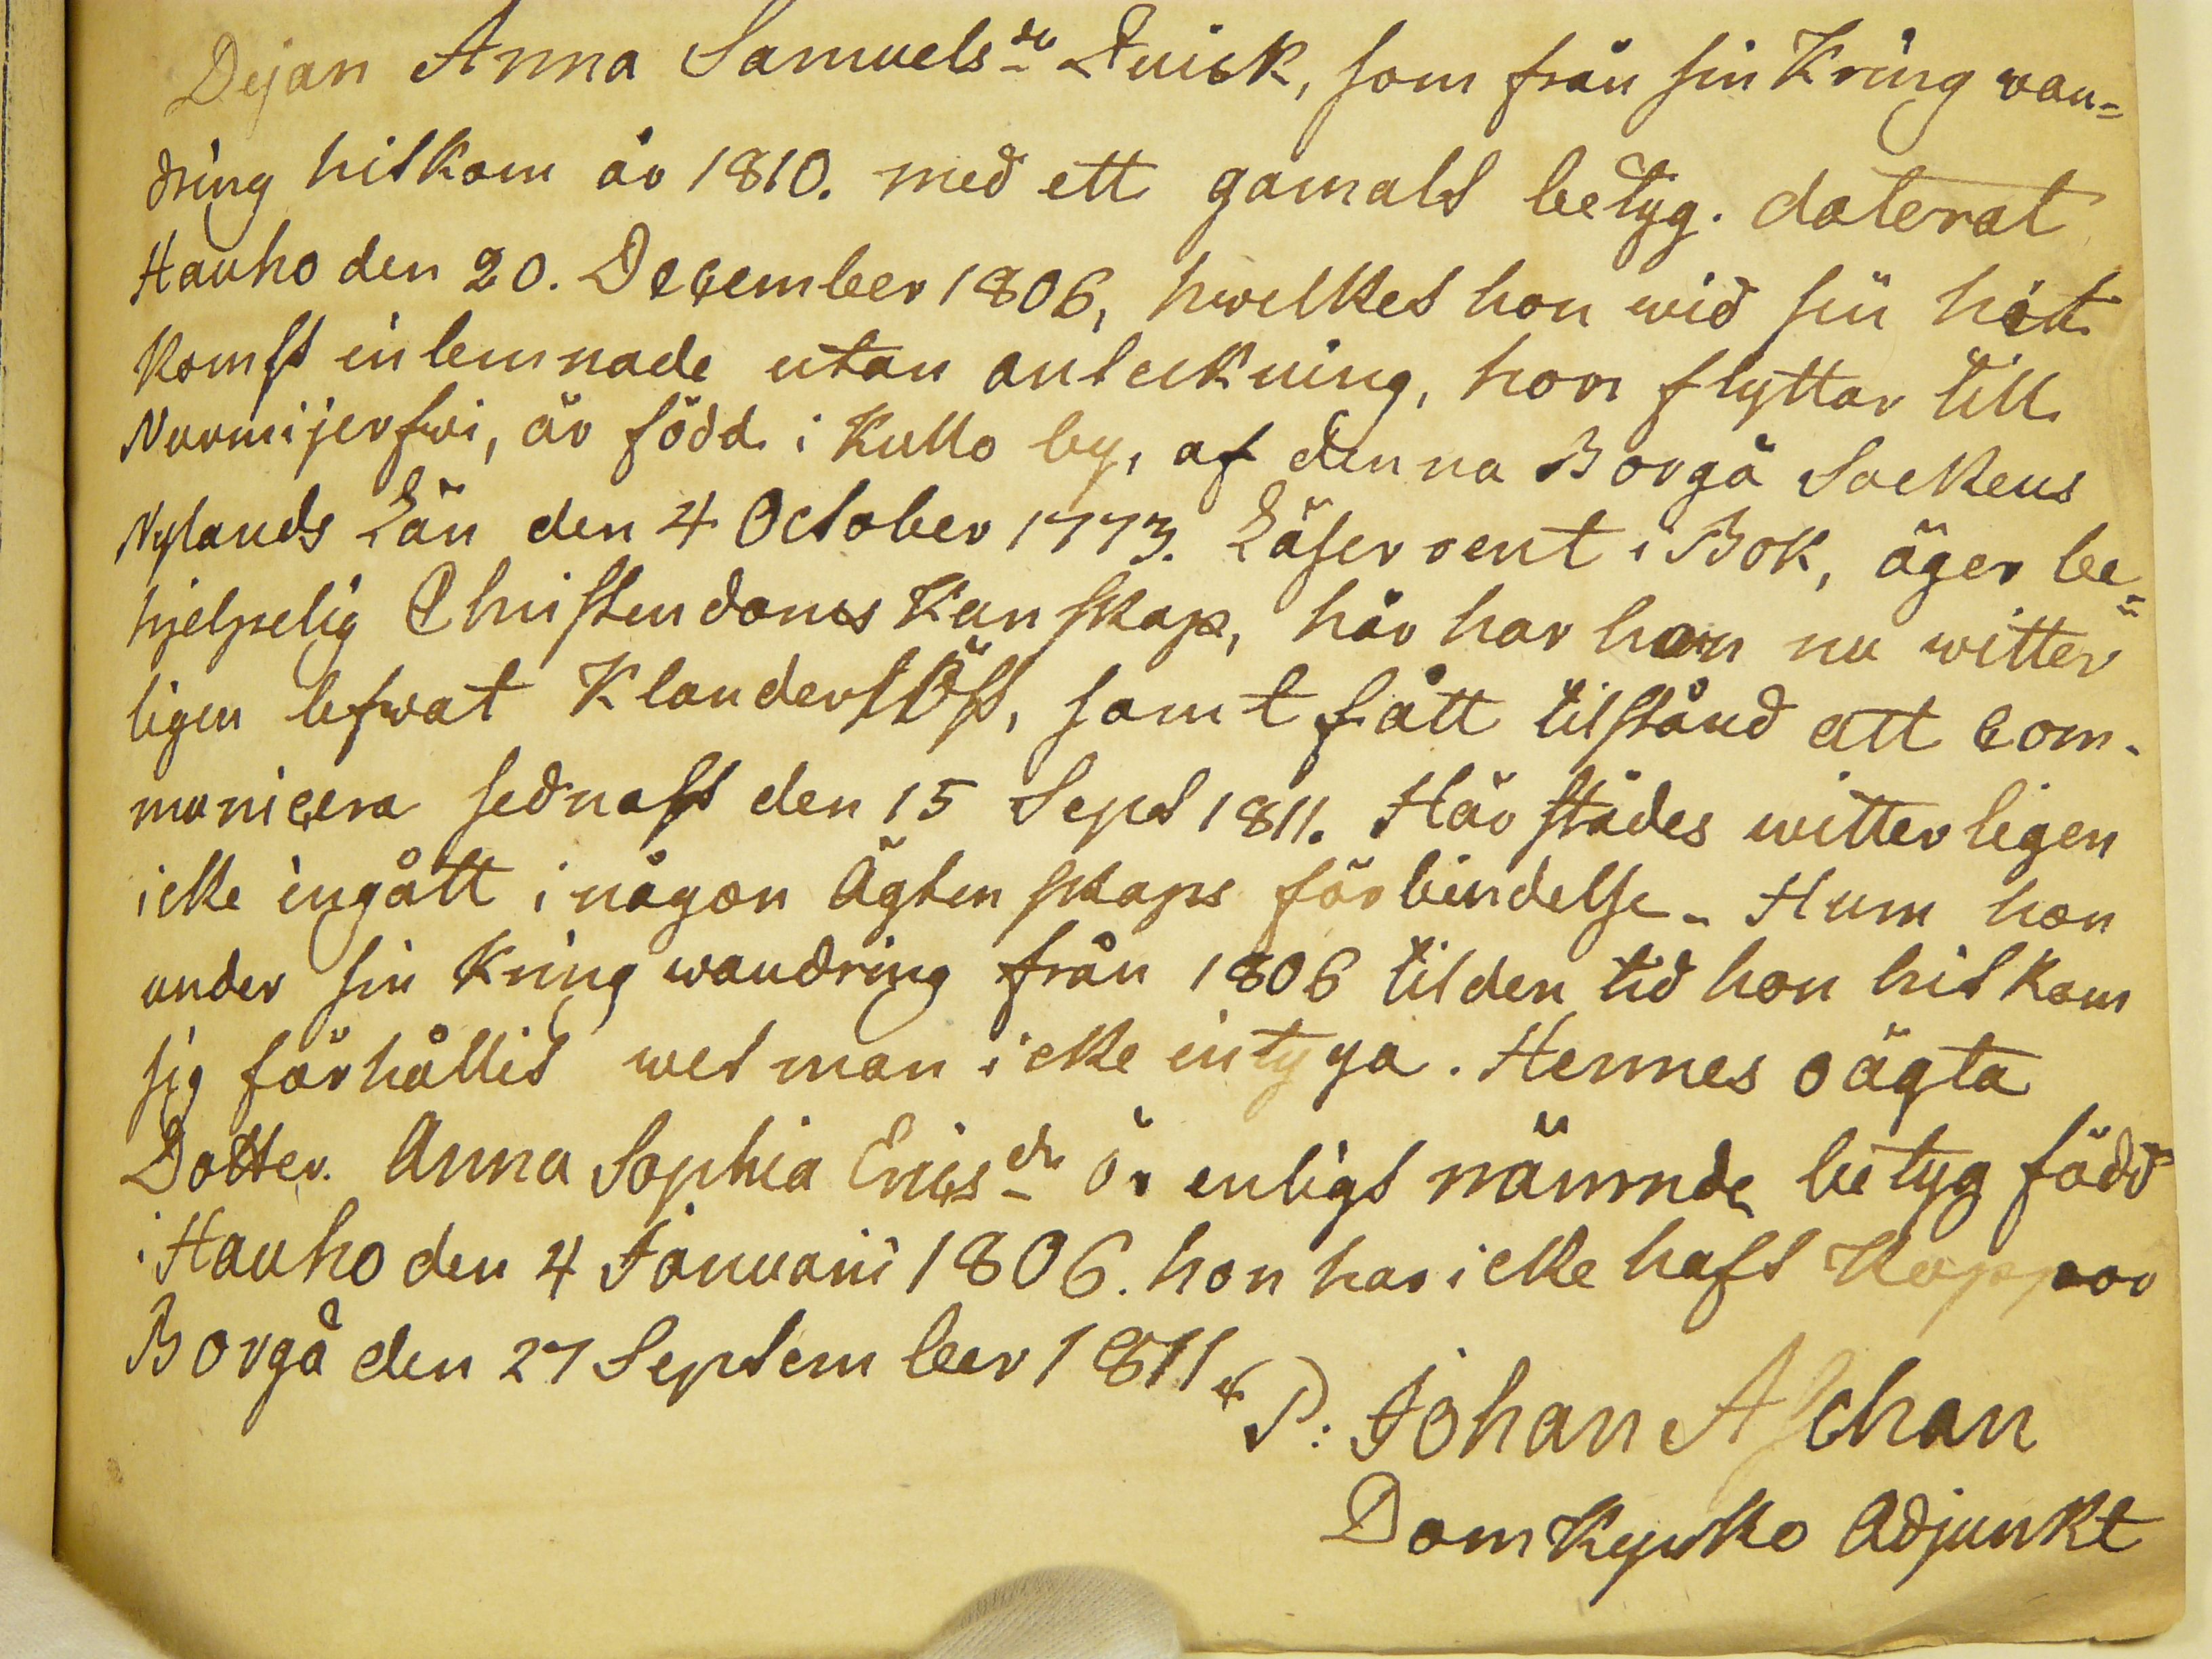 Dejan Anna Samuels dr Quick, som från sin Kring wan=
dring hitkom år 1810. med ett gamalt betyg. daterat
Hauho den 20. December 1806, hwilket hon wid sin hit
komst inlemnade utan anteckning, hon flyttar till
Nurmijerfwi, är född i Kullo by, af denna Borgå Sockens
Nylands Län den 4 October 1773. Läser rent i Bok, äger be=
hjelpelig Christendoms Kunskap, här har hon nu witter
ligen lefwat Klanderlöst, samt fått tilstånd att com-
municera sednast den 15 Sept 1811. Här städes witterligen
icke ingått i någon Ägtenskaps förbindelse - Hum hon
under sin Kring wandring från 1806 til den tid hon hit kom
sig förhållit wet man icke intyga. Hennes oägta
Dotter. Anna Sophia Erics dr är enligt nämnde betyg född
i Hauho den 4 Januarii 1806. hon har icke haft Koppor
Borgå den 27 September 1811
P: Johan Aschan
Domkyrko Adjunkt